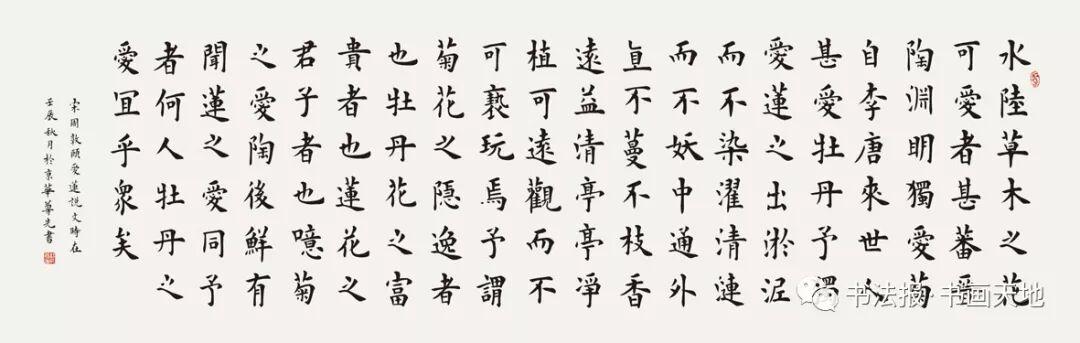 水陸草木之花
可愛者甚蕃晉
陶淵明獨愛菊
自李唐來世人
甚愛牡丹予獨
愛蓮之出淤泥
而不染濯清漣
而不妖中通外
直不蔓不枝香
遠益清亭亭凈
植可遠觀而不
可褻玩焉予謂
菊花之隱逸者
也牡丹花之富
貴者也蓮花之
君子者也噫菊
之愛陶後鮮有
聞蓮之愛同予
者何人牡丹之
愛宜乎眾矣
宋周敦頤愛蓮說文時在
壬辰秋月於京華華先書
书法报·书画天地